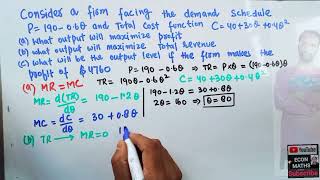 Considers a firm facing the demand schedule
P= 190-0.6Q and Total cost function C=40+30Q+0.4Q²
(a) What output will maximize profit
(b) what output will maximize total revenue
(c) what will be the output level if the firm makes the
profit of $4760 P= 190-0.6Q ⇒ TR= PXQ = (190-0.6Q)Q
(a) MR=MC TR= 190Q-0.6Q² C=40+30Q+0.4Q²
MR= d(TR)/dQ = 190-1.2Q
190-1.2Q = 30+0.8Q
2Q=160 ⇒ Q=80
MC = dC/dQ = 30+0.8Q
(b) TR → MR=0
ECON
MATHS
Subscribe